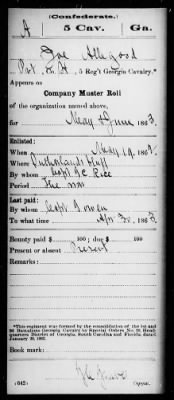 (Confederate.)
A 5 Cav. Ga.
Joe Allgood
Pvt Co. A, 5 Reg't Georgia Cavalry.*
Appears on
Company Muster Roll
of the organization named above,
for May & June, 1863.
Enlisted:
When May 19, 186
Where
By whom Capt
Period The war
Last paid:
By whom Capt Bowen
To what time Apr 30, 1863.
Bounty paid $ 100; due $ 100
Present or absent Present
Remarks:
*This regiment was formed by the consolidation of the 1st and
2d Battalions Georgia Cavalry by Special Orders No. 20 Head-
quarters District of Georgia, South Carolina and Florida, dated
January 20, 1863.
Book mark:
(642)
Copyist.